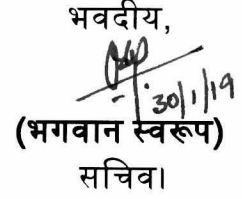 भवदीय,
30/1/19
(भगवान स्वरूप)
सचिव।